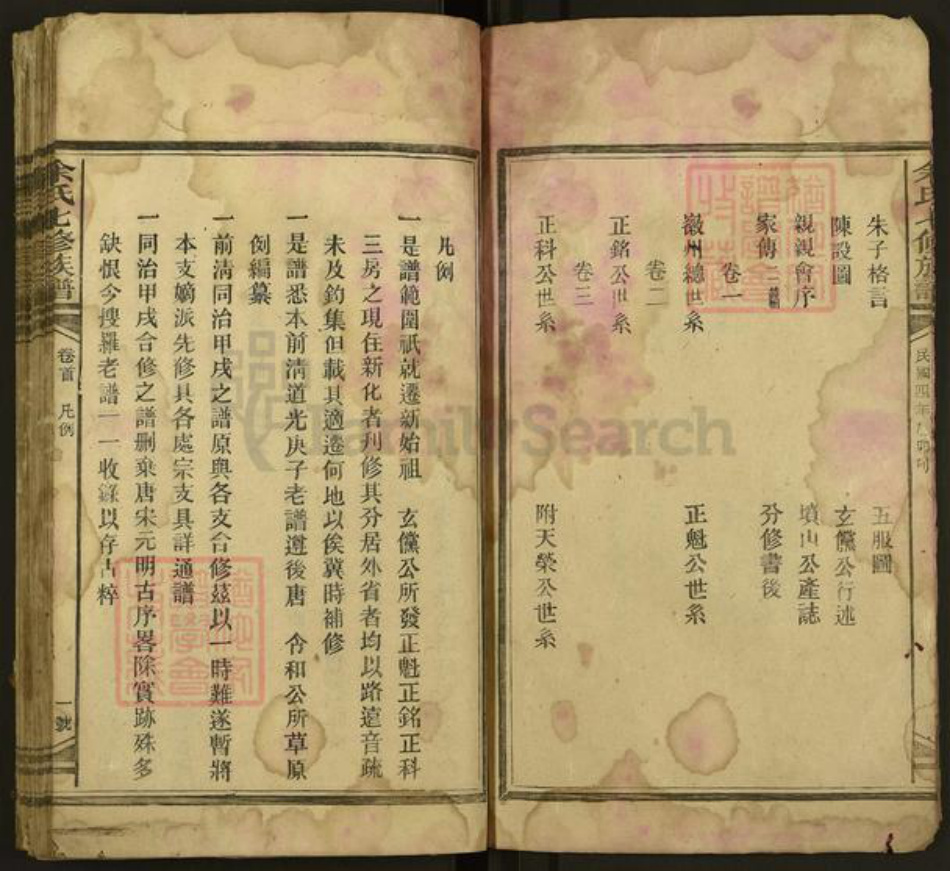 朱子格言
五服圖
陳設圖
玄儻公行述
親親會序
墳山公產誌
家傳二
分修書後
卷一
徽州總世系
正魁公世系
卷二
正銘公世系
卷三
正科公世系
附天榮公世系
余氏七修族譜
民國四年乙卯
凡例
一是譜範圍祇就遷新始祖 玄儻公所發正魁正銘正科
三房之現住新化者刋修其分居外省者均以路遠音疏
未及釣集但載其適遷何地以俟冀時補修
一是譜悉本前清道光庚子老譜遵後唐 含和公所草原
例編纂
一前清同治甲戌之譜原與各支合修茲以一時難遂暫將
本支嫡派先修具各處宗支具詳通譜
一同治甲戌合修之譜刪棄唐宋元明古序畧除實跡殊多
缺恨今搜羅老譜一一收錄以存古粹
余氏七修族譜
卷首 凡例
一號
FamilySearch